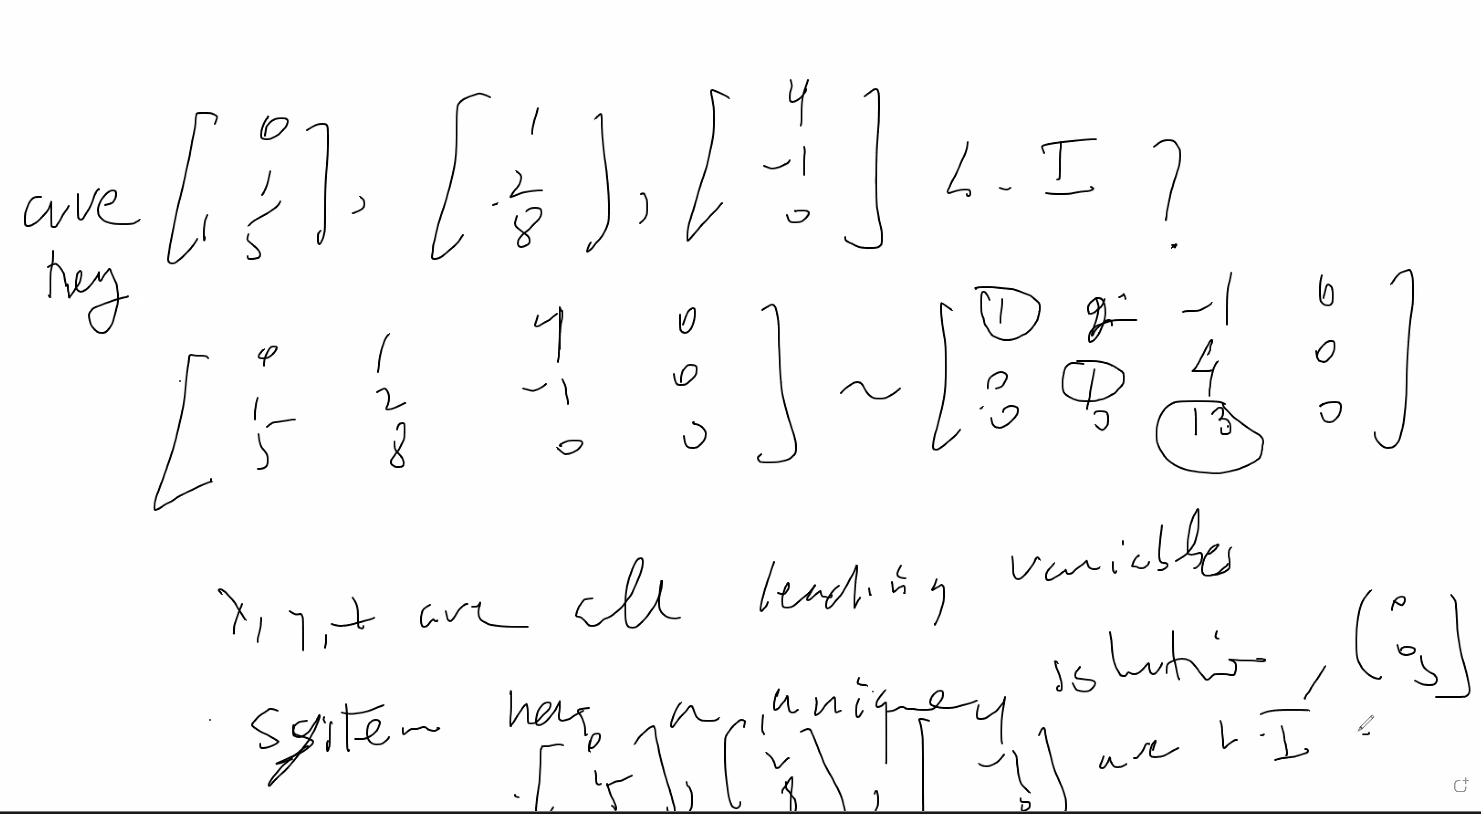 are they [0 1 5], [1 2 8], [4 -1 0] L.I?
[0 1 4 0
1 2 -1 0
5 8 0 0] ~ [1 2 -1 0
0 1 4 0
0 0 13 0]
x, y, z are all leading variables
system has a unique solution, [0 0 0]
[0 1 5], [1 2 8], [-1 0] are L.I.